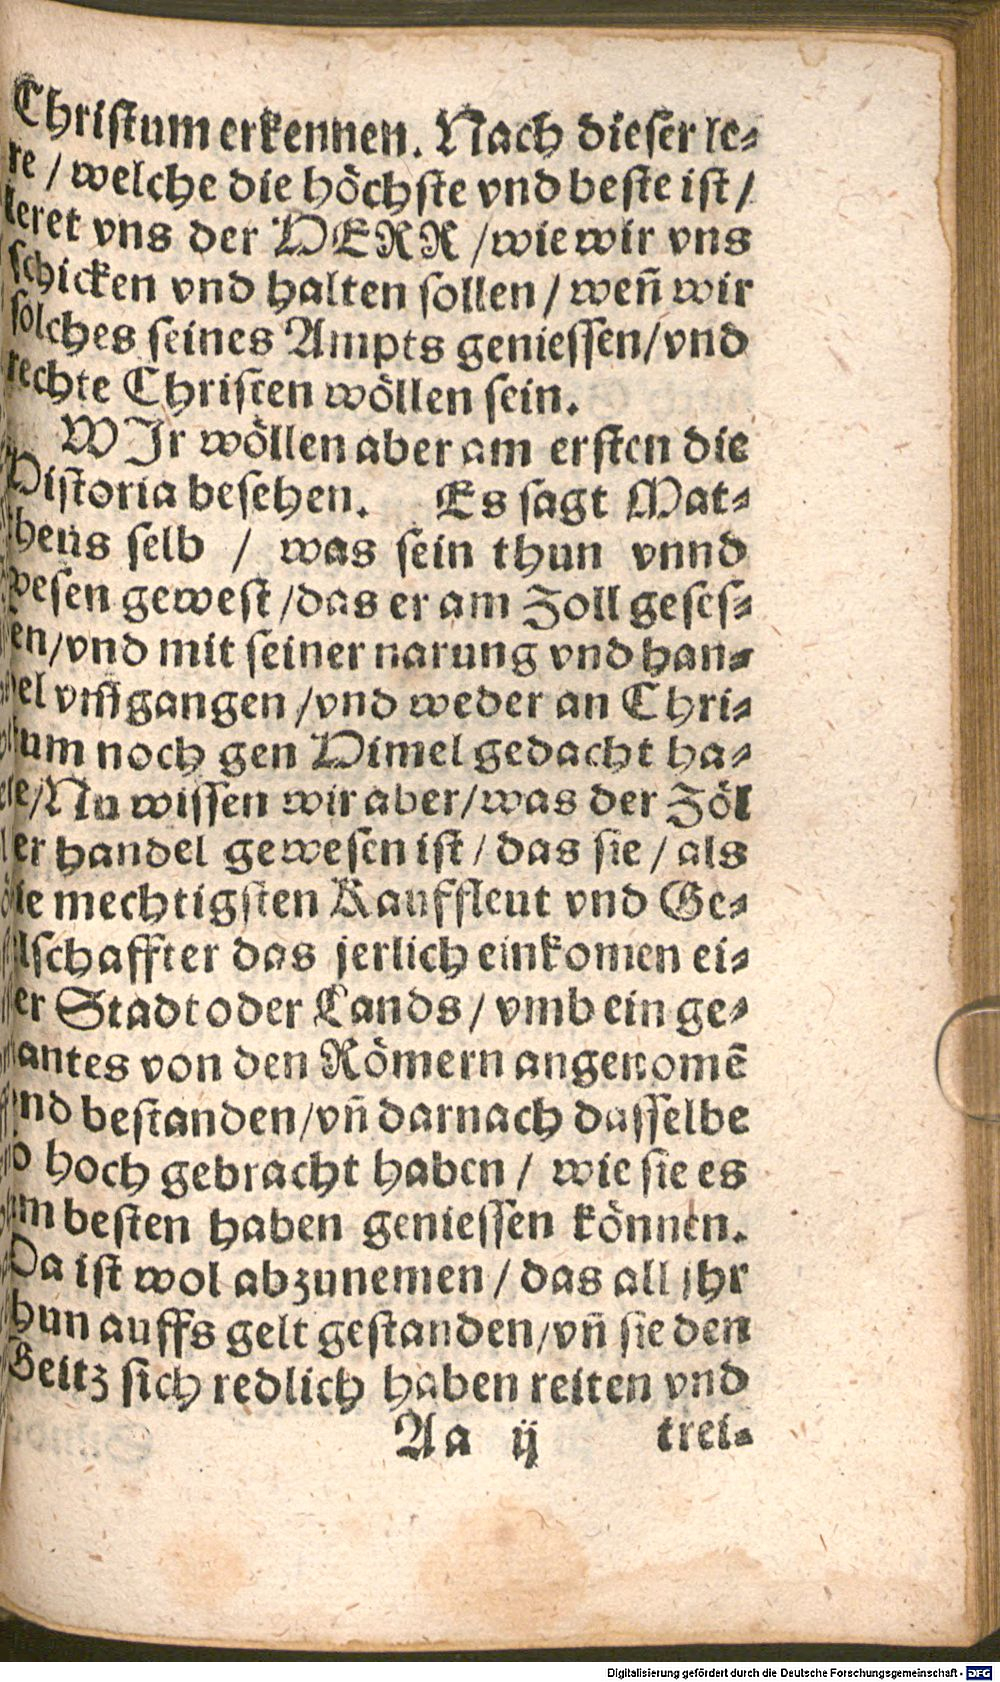 Christum erkennen. Nach dieser le-
re / welche die höchste vnd beste ist /
leret vns der HERR / wie wir vns
schicken vnd halten sollen / weñ wir
solches seines Ampts geniessen / vnd
rechte Christen wöllen sein.
WJr wöllen aber am ersten die
Historia besehen. Es sagt Mat-
theus selb / was sein thun vnnd
wesen gewest / das er am Zoll geses-
en / vnd mit seiner narung vnd han-
del vm̄gangen / vnd weder an Chri-
tum noch gen Himel gedacht ha-
te / Nu wissen wir aber / was der Zöl
ler handel gewesen ist / das sie / als
die mechtigsten Kauffleut vnd Ge-
lschaffter das jerlich einkomen ei-
er Stadt oder Lands / vmb ein ge-
antes von den Römern angenomē
vnd bestanden / vñ darnach dasselbe
so hoch gebracht haben / wie sie es
am besten haben geniessen können.
Da ist wol abzunemen / das all jhr
thun auffs gelt gestanden / vñ sie den
Geitz sich redlich haben reiten vnd
Aa ij trei-
Digitalisierung gefördert durch die Deutsche Forschungsgemeinschaft - DFG